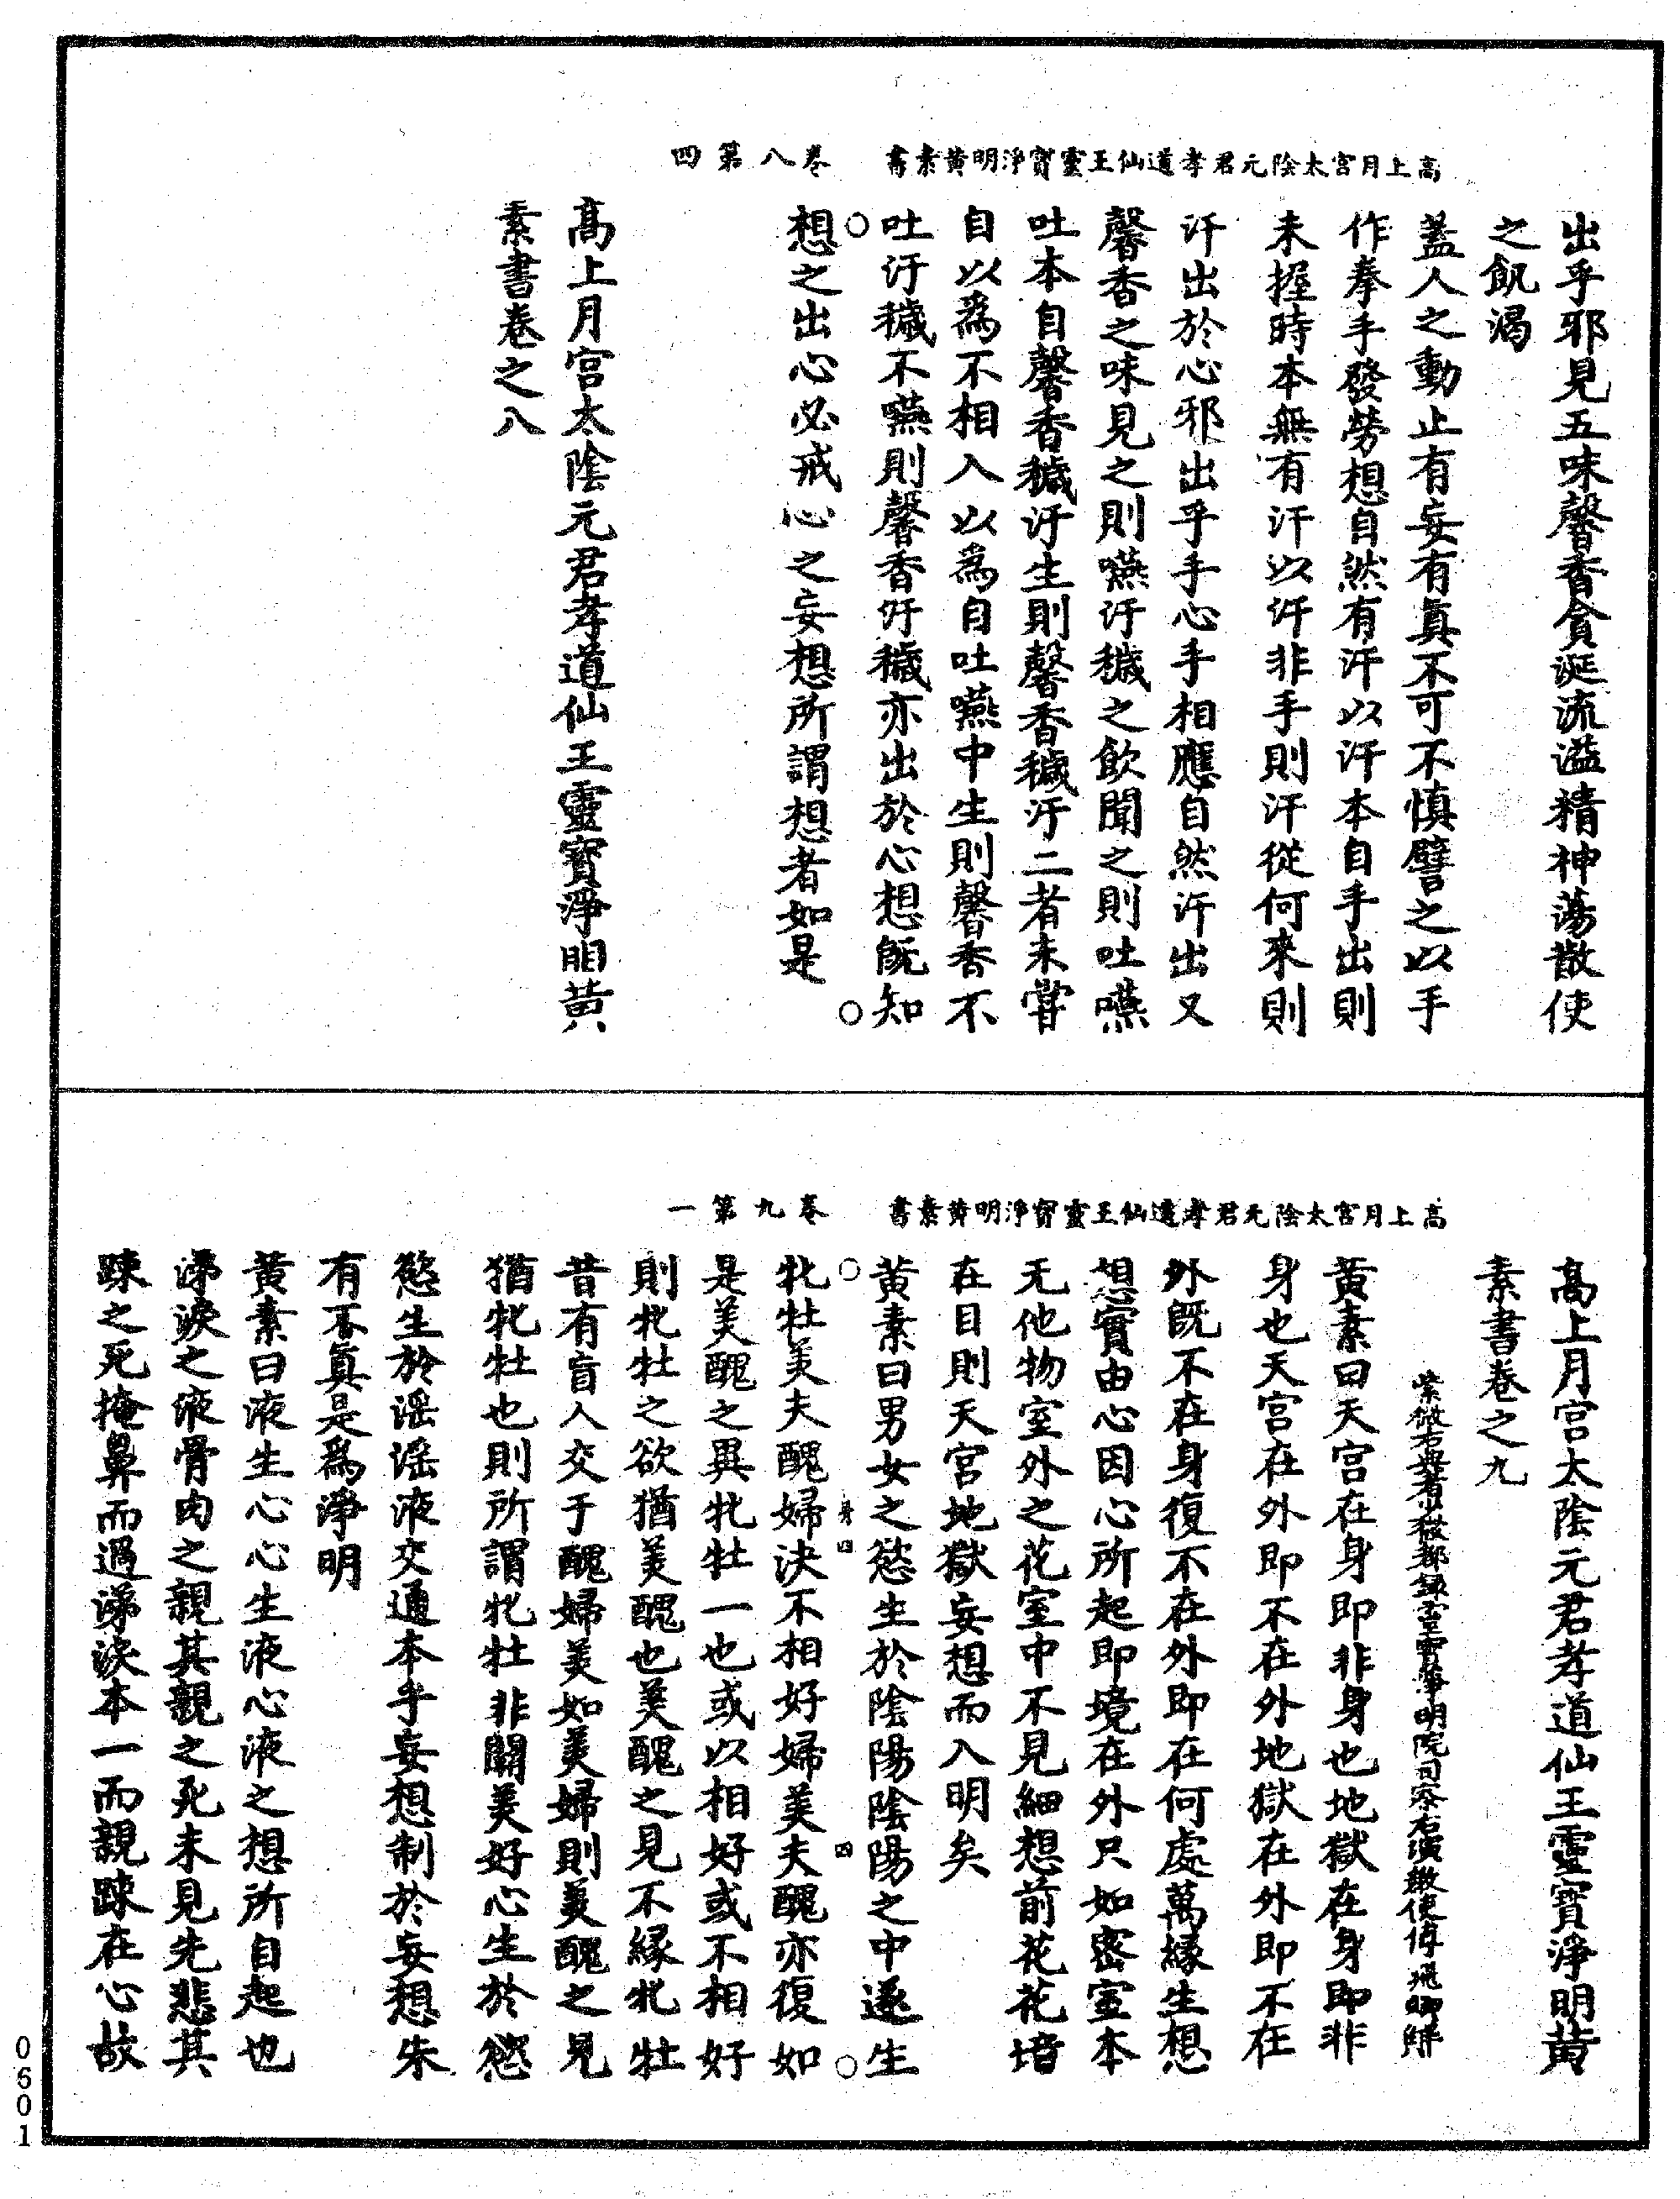 高上月宮太陰元君孝道仙王靈寶淨明黃素書　卷八第四
出乎邪見五味馨香貪涎流溢精神蕩散使
之飢渴
蓋人之動止有妄有真不可不慎譬之以手
作拳手發勞想自然有汗以汗本自手出則
未握時本無有汗以汗非手則汗從何來則
汗出於心邪出乎手心手相應自然汗出又
馨香之味見之則嚥汙穢之飲聞之則吐嚥
吐本自馨香穢汙生則馨香穢汙二者未嘗
自以為不相入以為自吐嚥中生則馨香不
吐汙穢不嚥則馨香汙穢亦出於心想既知
想之出心必戒心之妄想所謂想者如是
高上月宮太陰元君孝道仙王靈寶淨明黃
素書卷之八
高上月宮太陰元君孝道仙王靈寶淨明黃素書　卷九第一
高上月宮太陰元君孝道仙王靈寶淨明黃
素書卷之九
紫微右典者嶽都錄靈寶淨明院司察右演教使傅飛卿解
黃素曰天宮在身即非身也地獄在身即非
身也天宮在外即不在外地獄在外即不在
外既不在身復不在外即在何處萬緣生想
想實由心因心所起即境在外只如密室本
无他物室外之花室中不見細想前花花墻
在目則天宮地獄妄想而入明矣
黃素曰男女之慾生於陰陽陰陽之中遂生
牝牡美夫醜婦決不相好婦美夫醜亦復如
是美醜之異牝牡一也或以相好或不相好
則牝牡之欲猶美醜也美醜之見不緣牝牡
昔有盲人交于醜婦美如美婦則美醜之見
猶牝牡也則所謂牝牡非關美好心生於慾
慾生於滛滛液交通本乎妄想制於妄想朱
有不真是為淨明
黃素曰液生心心生液心液之想所自起也
涕淚之液骨肉之親其親之死未見先悲其
踈之死掩鼻而過涕淚本一而親踈在心故
四
0601